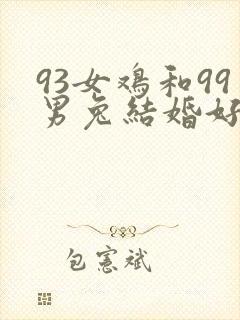 93女鸡和99
男兔结婚好
包宪斌